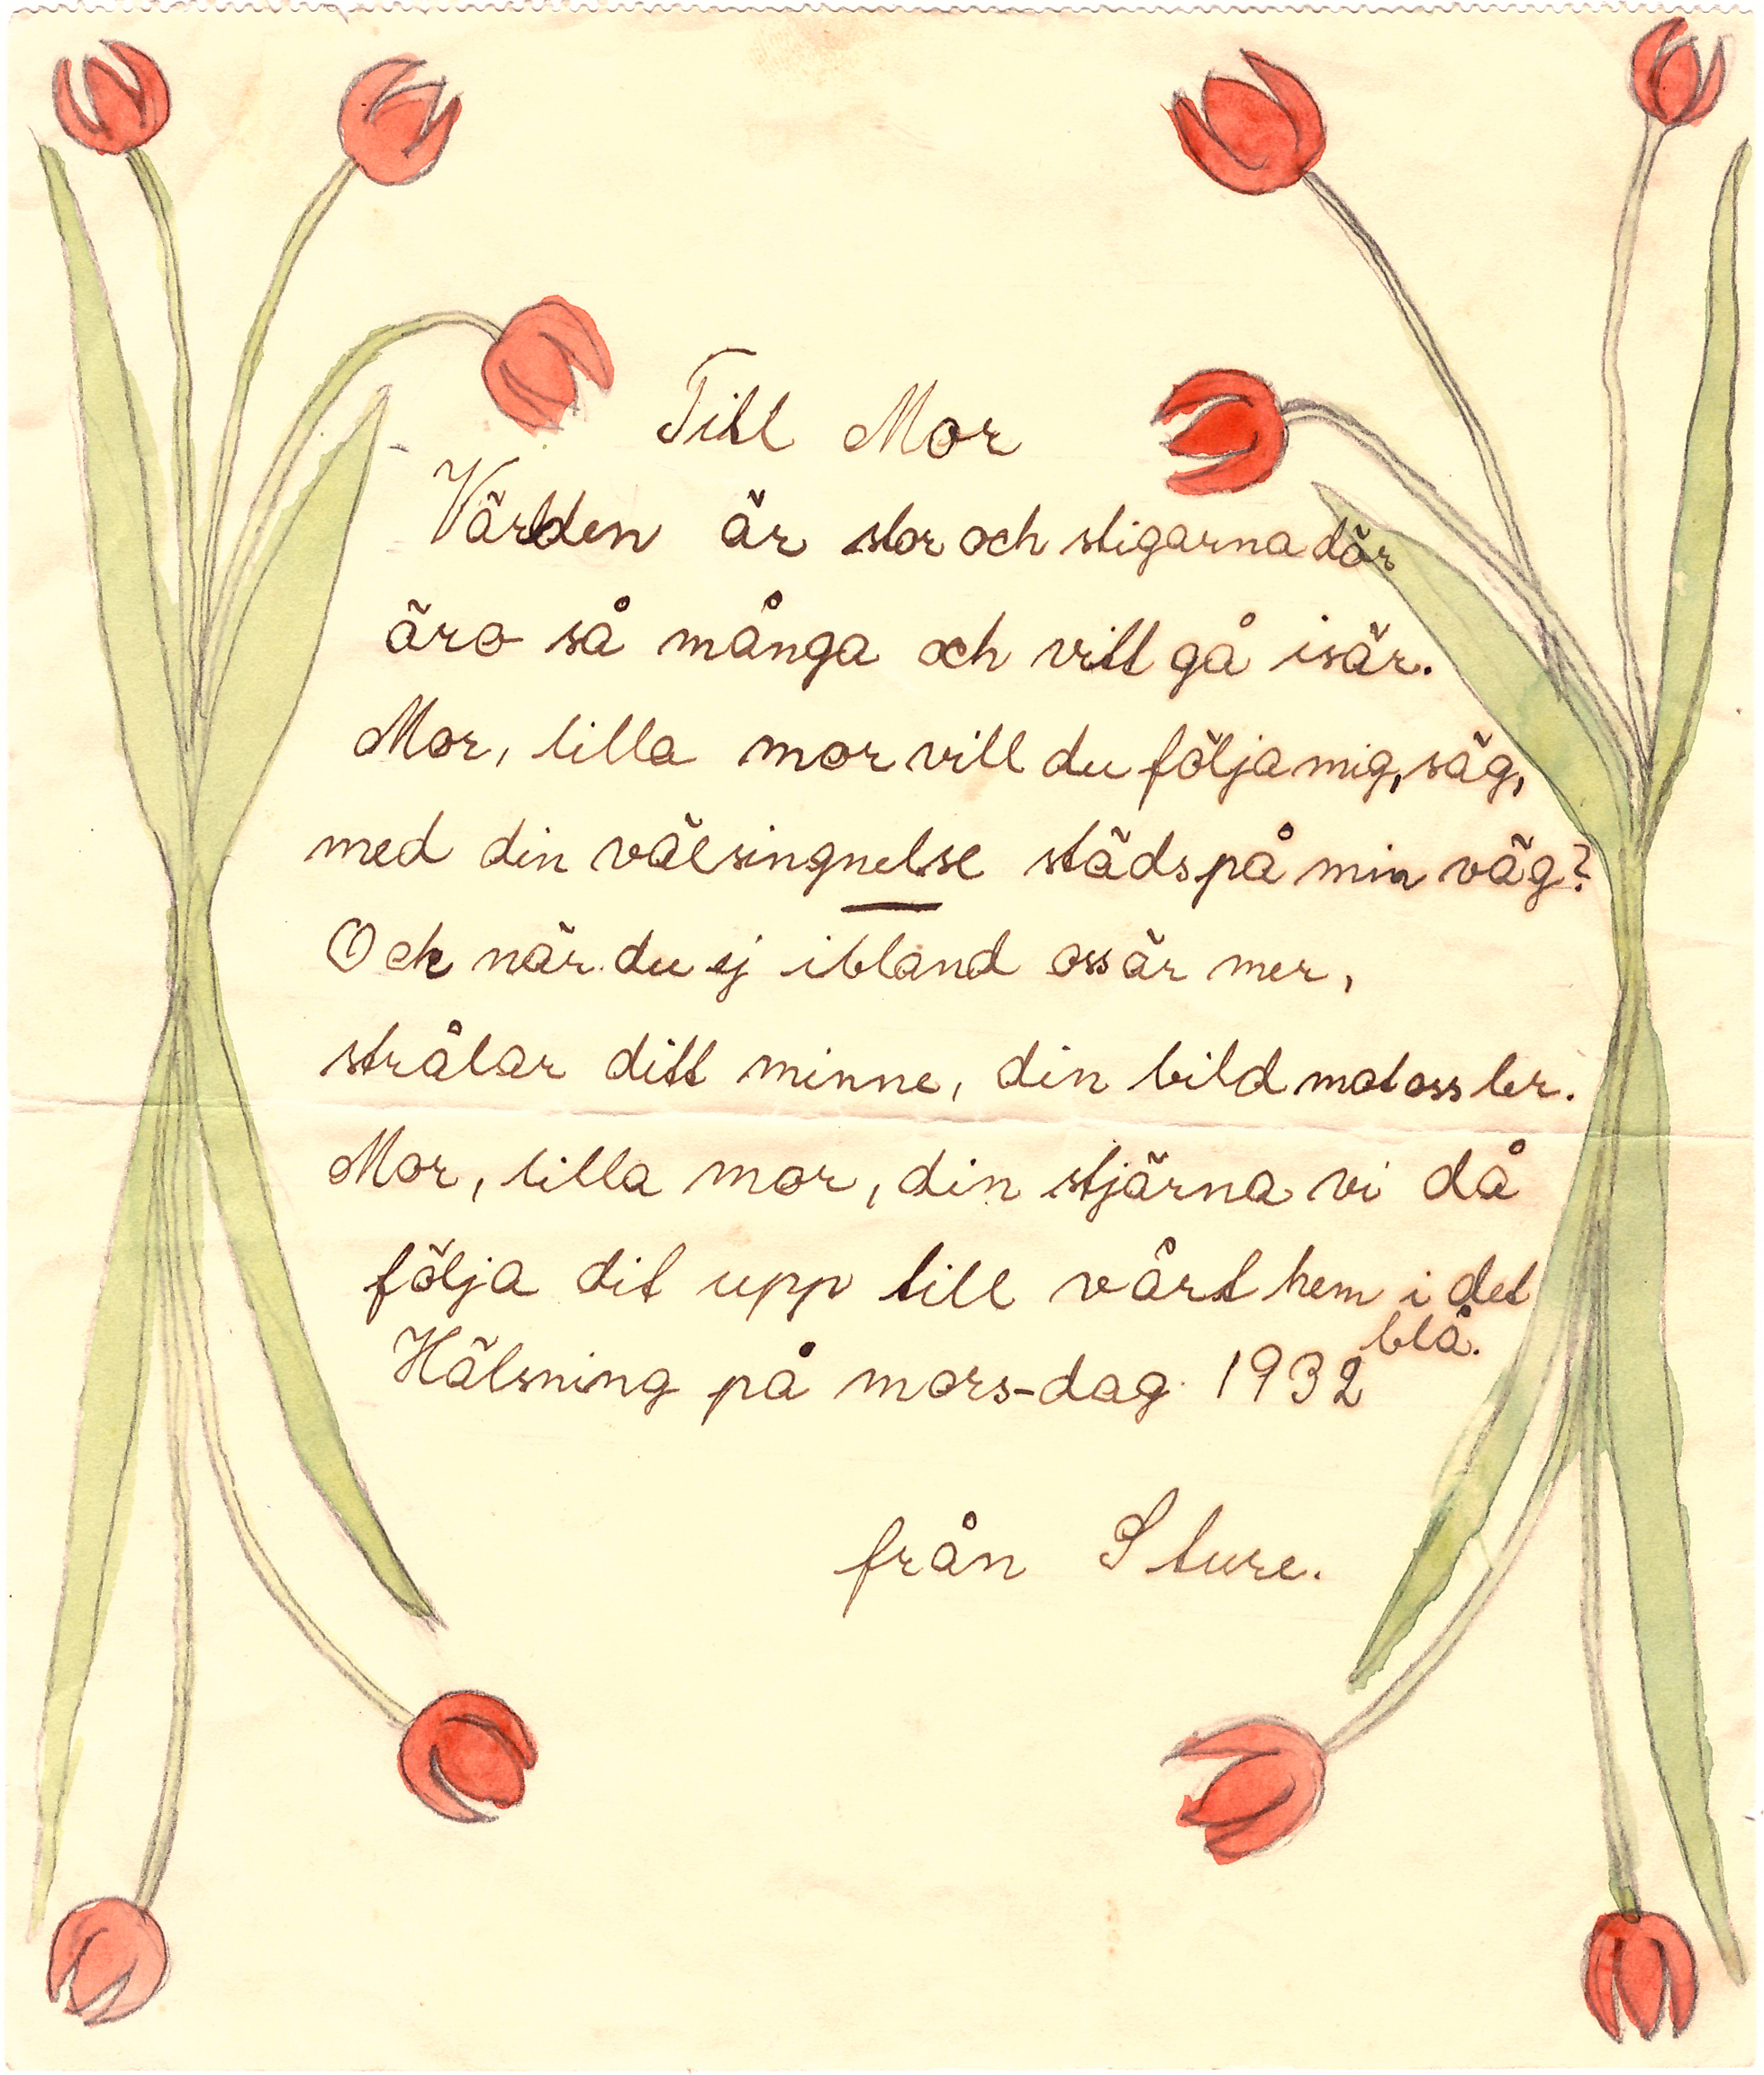 Till Mor
Världen är stor och stigarna där
äro så många och vitt gå isär.
Mor, lilla mor vill du följa mig, säg,
med din välsingnelse städs på min väg?
Och när du ej ibland oss är mer,
strålar ditt minne, din bild mot oss ler.
Mor, lilla mor, din stjärna vi då
följa dit upp till vårt hem i det
blå.
Hälsning på mors-dag 1932
från Sture.